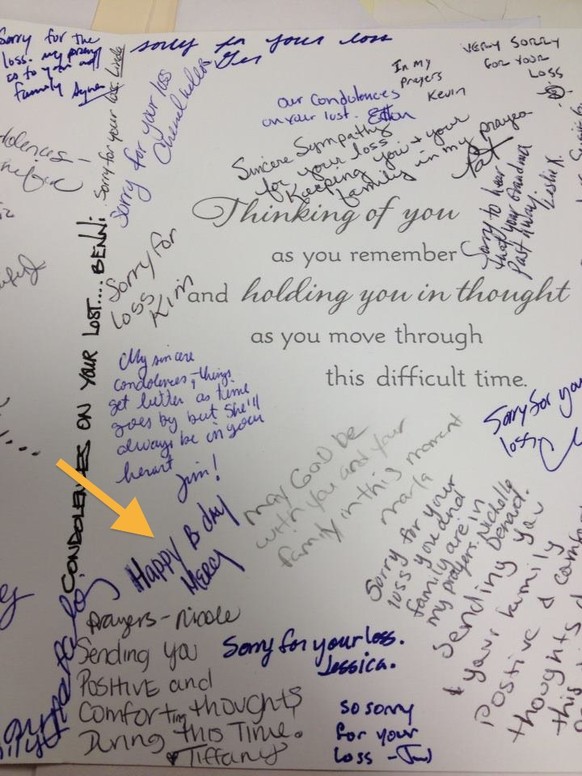 Sorry for the
loss. my prayers
go to you and
family
sorry for your loss
In my
Prayers
Kevin
VERY SORRY
FOR YOUR
LOSS
Sorry for your loss Linda
Sorry for your loss
our condolences
on your lost.
Sincere Sympathy
for your loss
Keeping you & your
family in my prayers
Pat
Sorry to hear
that your Grandma
Past Away
Leslie K.
Thinking of you
as you remember
and holding you in thought
as you move through
this difficult time.
Sorry for
loss
Kim
CONDOLENCES ON YOUR LOST.... BENNi
My sincere
condolences, things
get better as time
goes by but she'll
always be in your
heart
Jim!
Sorry for your
loss
May God be
with you and your
family in this moment
Marla
Happy B day
Mercy
Sorry for your
loss you and
family are in
my prayers. Nichelle
Sending you
& your family
positive &
thoughts
this
Prayers - Nicole
Sending you
Positive and
Comforting thoughts
During this Time.
Tiffany
Sorry for your loss.
Jessica.
so sorry
for your
loss